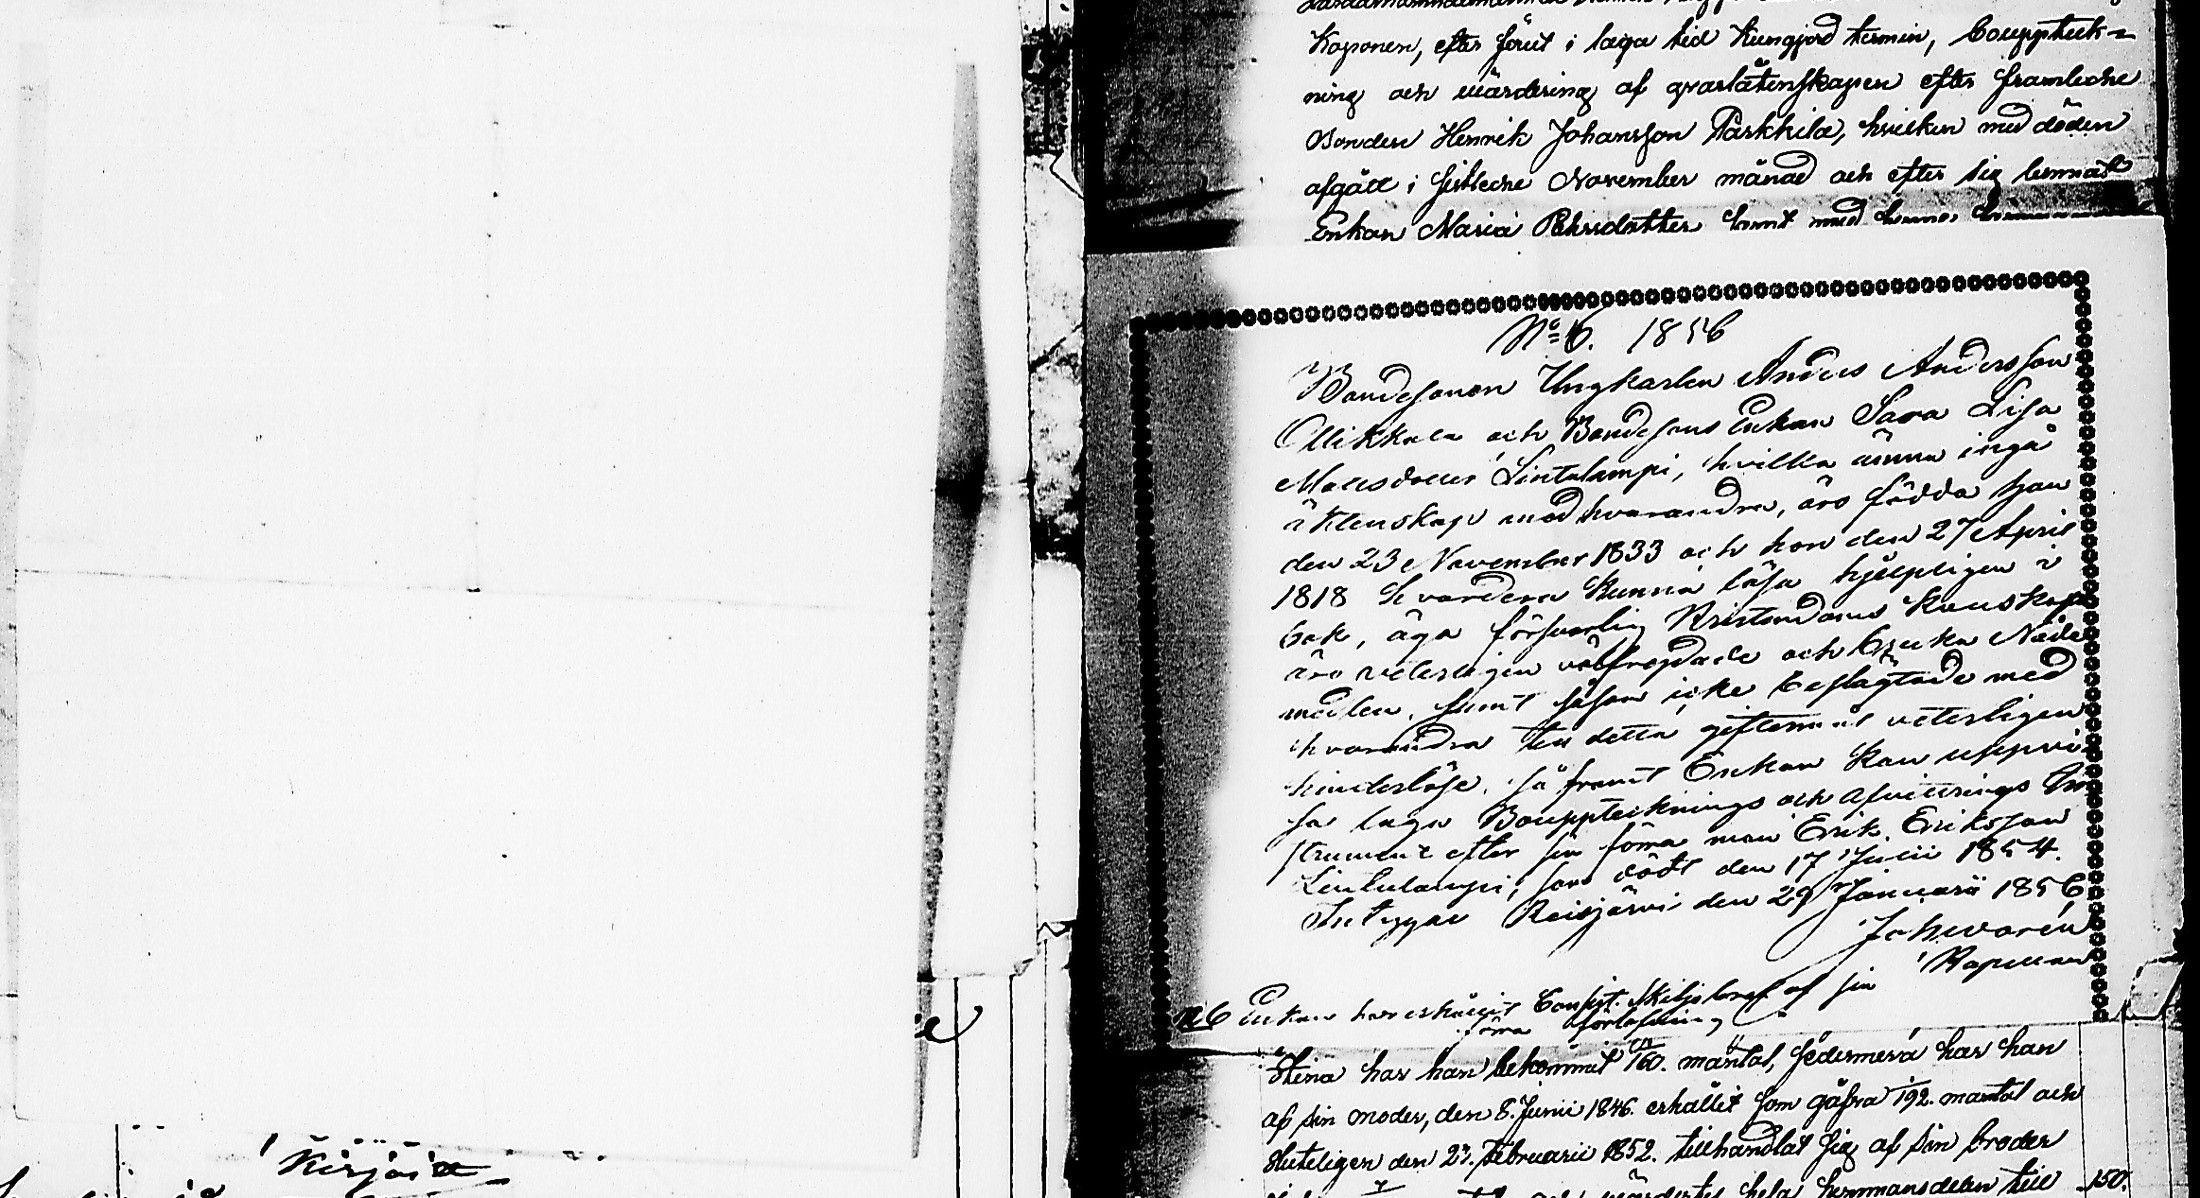 Koponen, efter förut i laga tid kungjord termin, Bouppteck-
ning och värdering af qvarlåtenskapen efter framledne
Bonden Henrik Johansson Parkkila, hvilken med döden
afgått i sistledne November månad och efter sig lemnat
Enkan Maria Pehrsdotter samt med henne
No 6. 1856
Bondesonen Ungkarlen Anders Andersson
Ollikkala och Bondesons Enkan Sara Lisa
Matsdotter Lintulampi, hvilka ämna ingå
äktenskap med hvarandra, äro födda han
den 23 November 1833 och hon den 27 April
1818 hvardera kunna läsa hjelpligen i
bok, äga försvarlig Kristendoms kunskap
äro veterligen välfrejdade och bruka Nåde
medlen, samt såsom icke beslägtade med
hvarandra till detta giftermål veterligen
hinderslöse, så framt Enkan kan uppvi-
sa laga Bouppteknings och Afvittrings In
strument efter sin förra man Erik Eriksson
Lintulampi, som dödt den 17 Julii 1854.
Intygar Reisjärvi den 29 Januarii 1856
Kapellan
6 Enkan har erhållit Consist. Skiljobref af sin
förra förlofning
Stina har han bekommit /160. mantal, jedemera har han
af sin moder, den 8. Junii 1846. erhållit som gåfva 1/192. mantal och
sluteligen den 27. Februarii 1852. tillhandlat sig af sin broder
värdertes hela hemmansdelen till 150.
Kirjoja